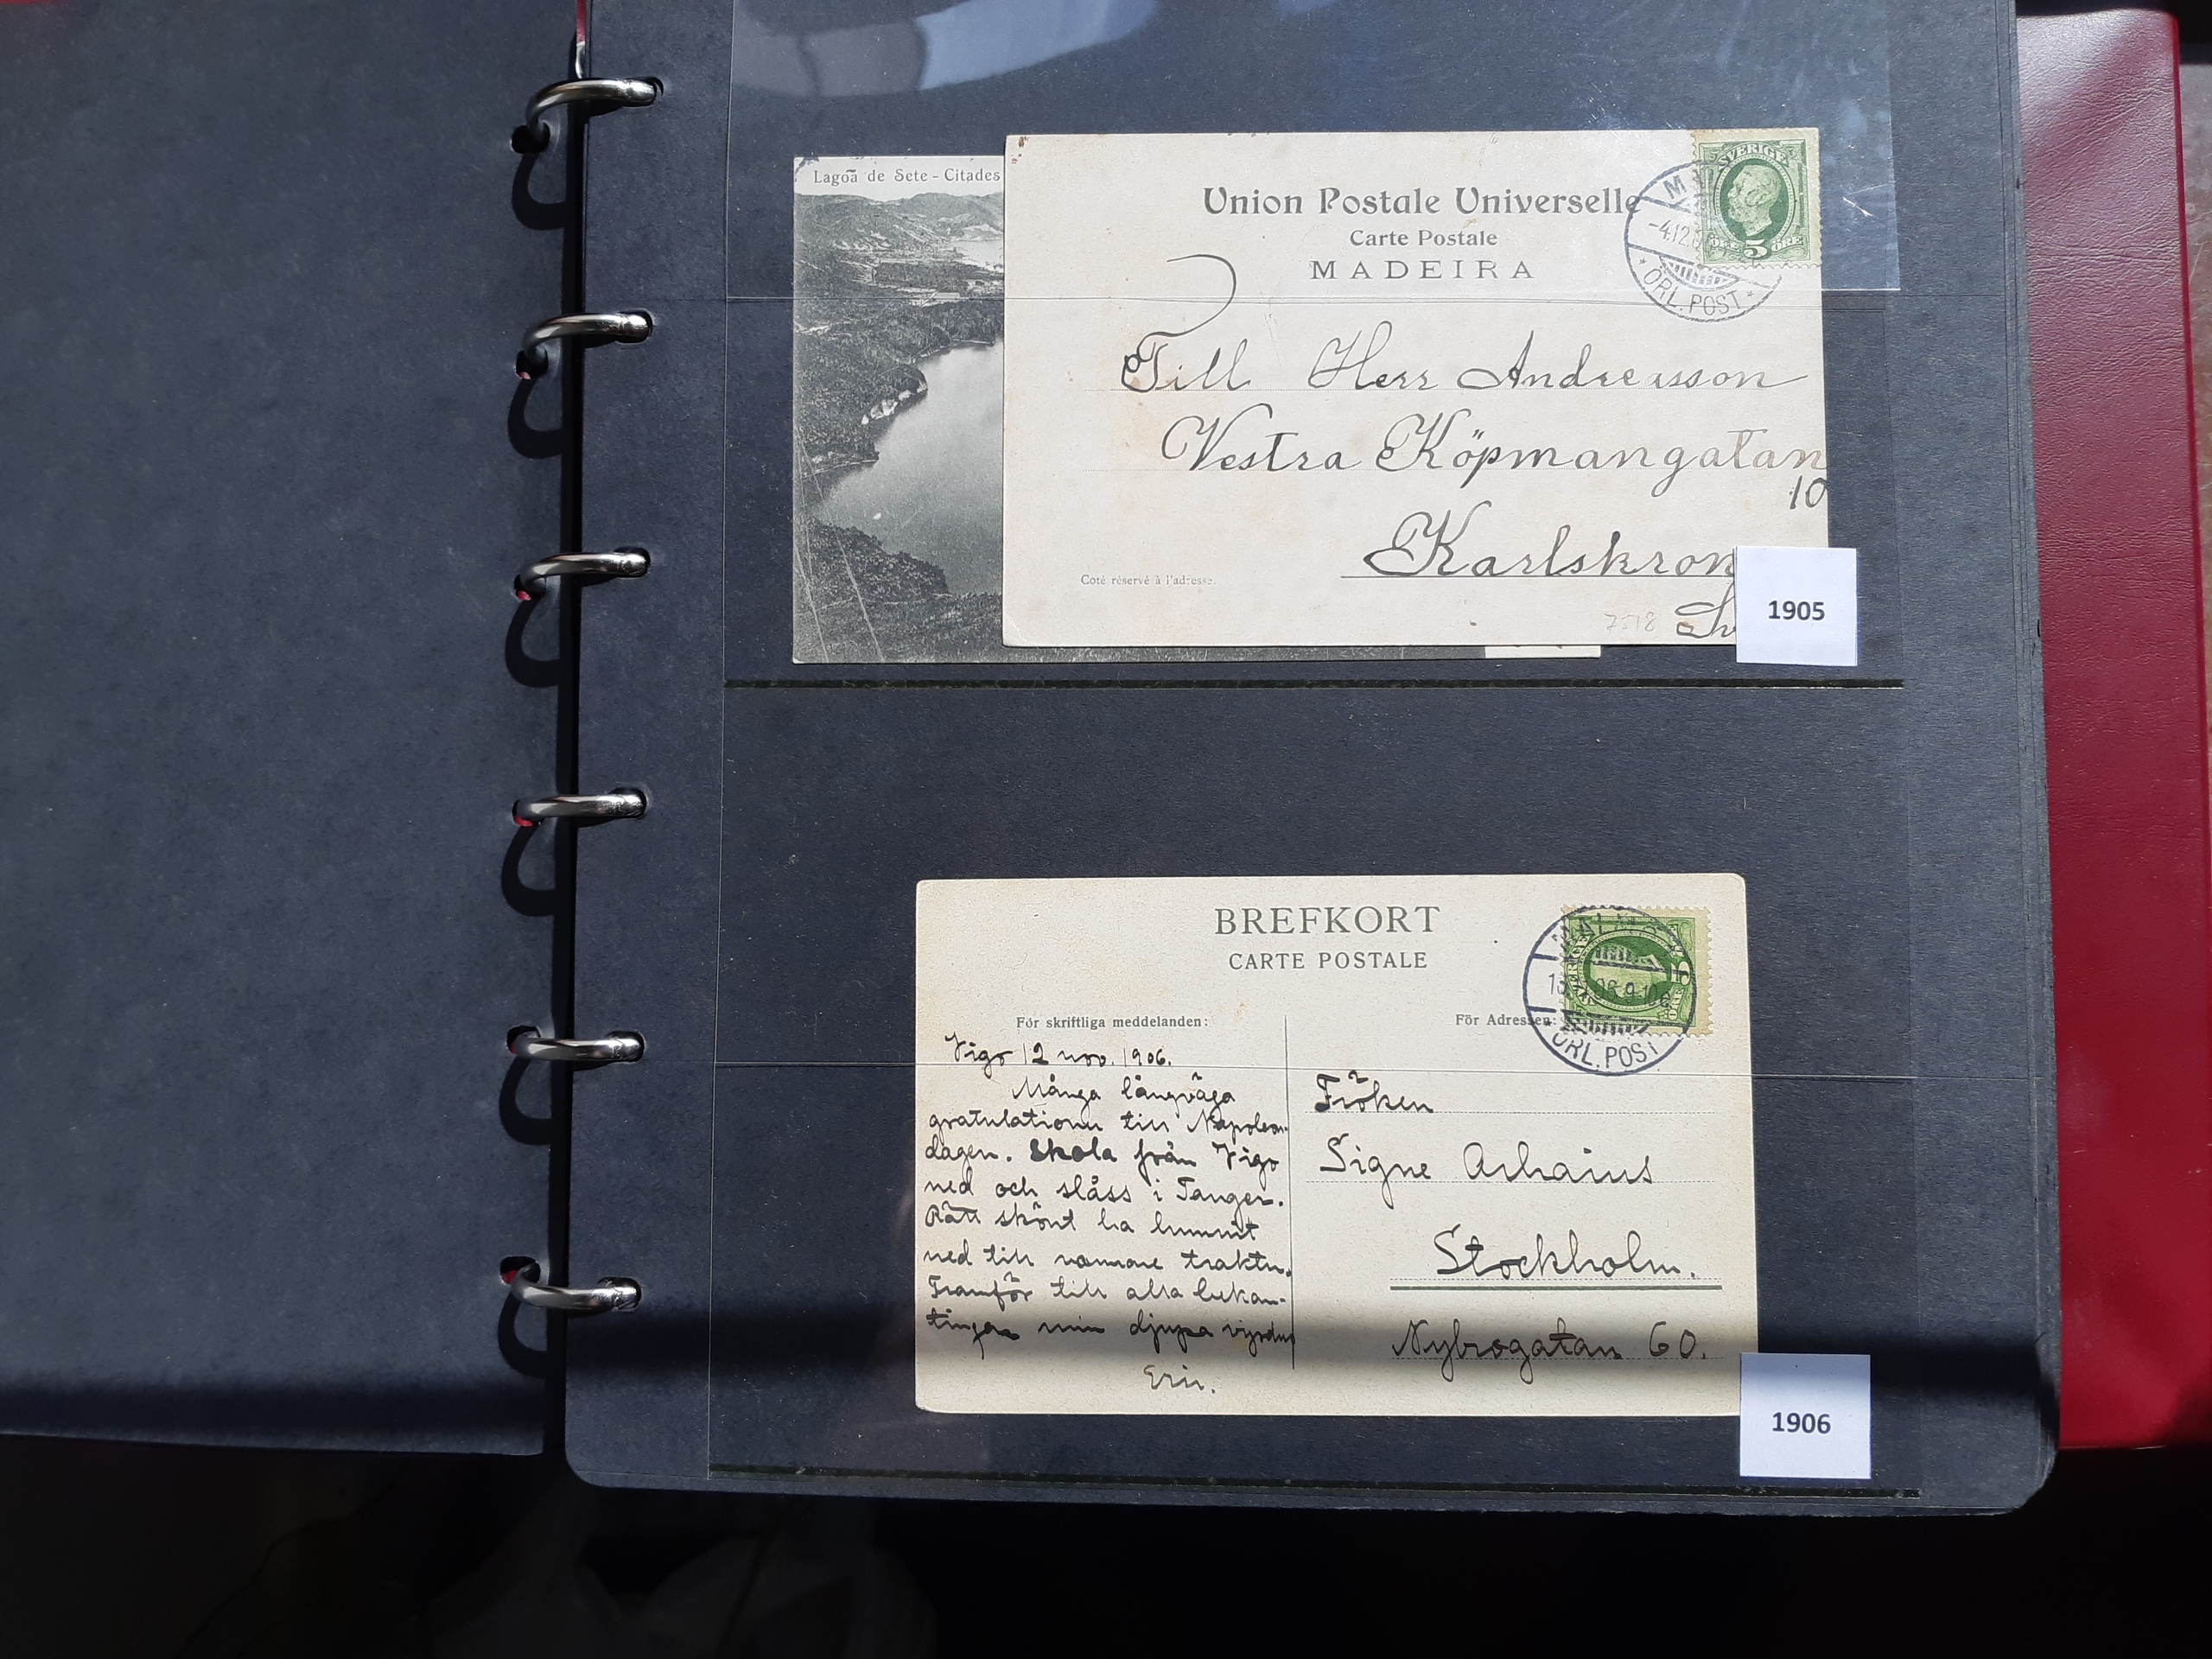 Lagoa de Sete - Citades
Union Postale Universelle
Carte Postale
MADEIRA
SVERIGE
5
ÖRE
-4.12.
ÖRL. POST
Till Herr Andreasson
Vestra Köpmangatan
10
Karlskron
Sv
Coté réservé à l'adresse.
7518
1905
BREFKORT
CARTE POSTALE
ÖRL. POST
För skriftliga meddelanden:
För Adressen:
Vigo 12 nov. 1906.
Många långväga
gratulationer till Napoleon-
dagen. Skola från Vigo
ned och slåss i Tanger.
Rätt skönt ha hunnit
ned till varmare trakter.
Framför till alla bekan-
tingar min djupa vördnad
Eric.
Fröken
Signe
Stockholm.
Nybrogatan 60.
1906